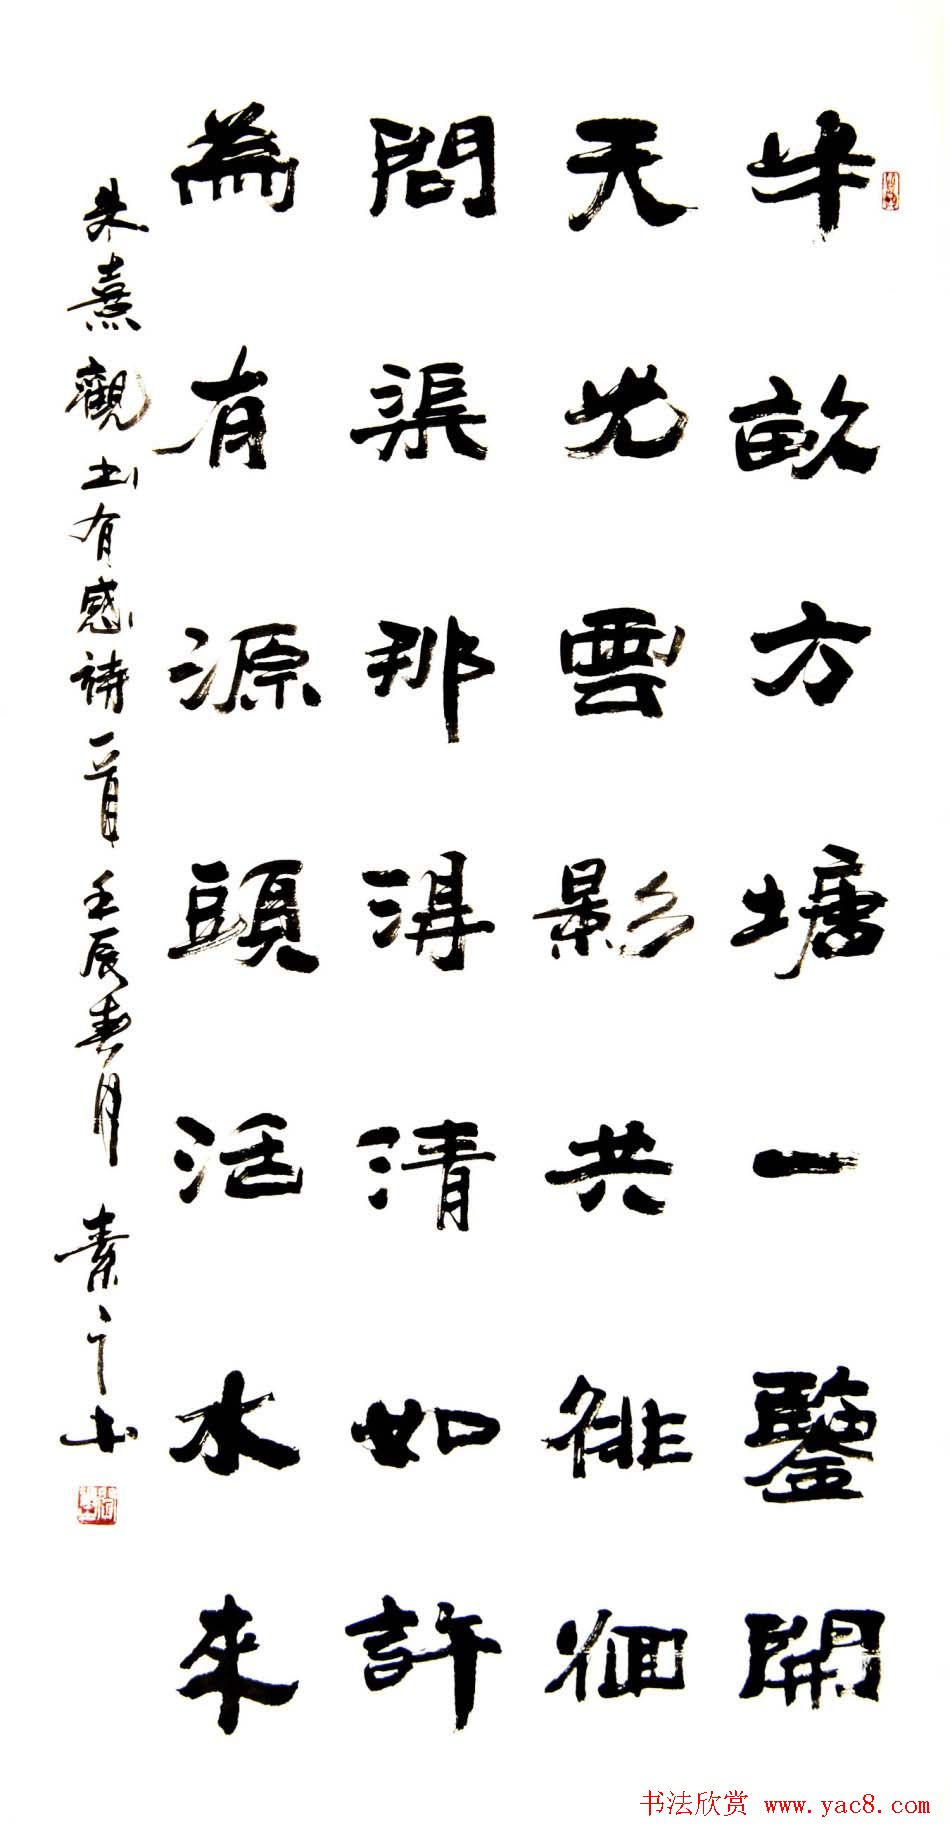 半畝方塘一鑒開
天光雲影共徘徊
問渠那得清如許
為有源頭活水來
朱熹觀书有感詩一首 壬辰春月 素之书
书法欣赏 www.yac8.com